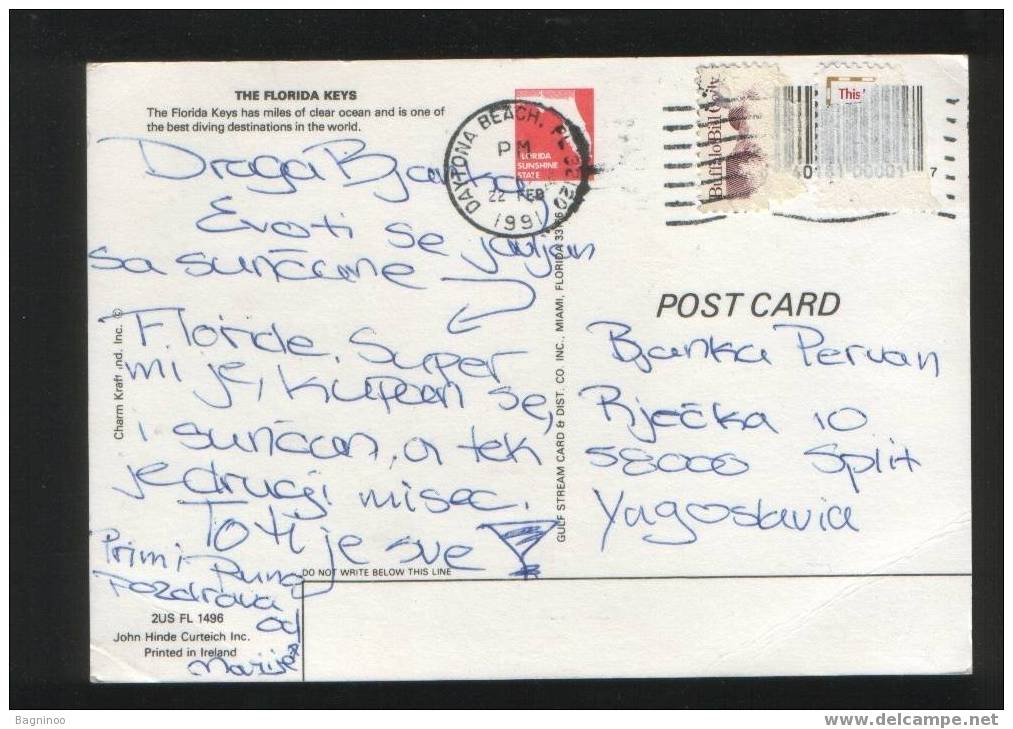 THE FLORIDA KEYS
The Florida Keys has miles of clear ocean and is one of
the best diving destinations in the world.
Draga Bjanka
Evo ti se javljam
sa sunčane
Floride. Super
mi je, kupam se,
i sunčam, a tek
je drugi misec.
To ti je sve
Primi puno
Pozdrava
od
Marije
2US FL 1496
John Hinde Curteich Inc.
Printed in Ireland
Charm Kraft Ind. Inc. ©
DO NOT WRITE BELOW THIS LINE
GULF STREAM CARD & DIST. CO. INC., MIAMI, FLORIDA
FLORIDA
SUNSHINE
STATE
DAYTONA BEACH, FL
PM
22 FEB
1991
Buffalo Bill Cody
This
40181 00001 7
POST CARD
Bjanka Pervan
Rječka 10
58000 Split
Yugoslavia
Bagninoo
www.delcampe.net